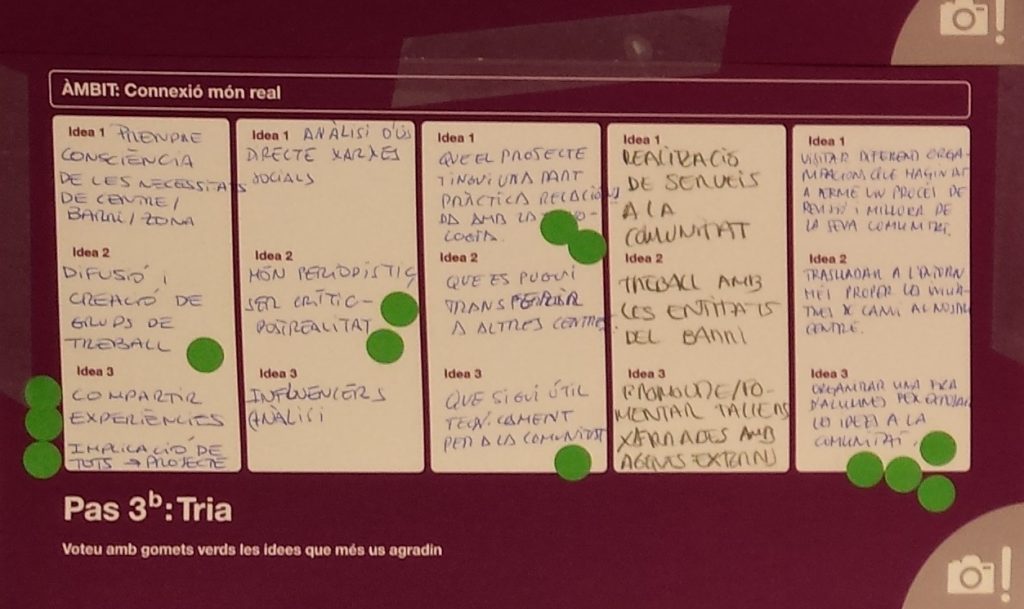 ÀMBIT: Connexió món real
Idea 1 PRENDRE
CONSCIÈNCIA
DE LES NECESSITATS
DE CENTRE/
BARRI/ZONA
Idea 2
DIFUSIÓ I
CREACIÓ DE
GRUPS DE
TREBALL
Idea 3
COMPARTIR
EXPERIÈNCIES
IMPLICACIÓ DE
TOTS → PROJECTE
Idea 1 ANÀLISI D'ÚS
DIRECTE XARXES
SOCIALS
Idea 2
MÓN PERIODÍSTIC,
SER CRÍTIC-
POTREALITAT
Idea 3
INFLUENCERS
ANÀLISI
Idea 1
QUE EL PROJECTE
TINGUI UNA PART
PRÀCTICA RELACIONA
DA AMB LA
LOGIA.
Idea 2
QUE ES PUGUI
TRANSFERIR
A ALTRES CENTRES
Idea 3
QUE SIGUI ÚTIL
TECN.CAMENT
PER A LA COMUNITAT
Idea 1
REALITZACIÓ
DE SERVEIS
A LA
COMUNITAT
Idea 2
TREBALL AMB
LES ENTITATS
DEL BARRI
Idea 3
PROMOURE/FO-
MENTAR TALLERS
XERRADES AMB
AGENTS EXTERNS
Idea 1
VISITAR DIFERENT ORGA-
QUE HAGIN
A TERME UN PROCÉS DE
REVISIÓ I MILLORA DE
LA SEVA COMUNITAT.
Idea 2
TRASLLADAR A L'ENTORN
MÉS PROPER LA
X CANVI AL NOSTRE
CENTRE.
Idea 3
ORGANITZAR UNA FIRA
D'ALUMNES PER EXPOSAR
LO IDEES A LA
COMUNITAT.
Pas 3b: Tria
Voteu amb gomets verds les idees que més us agradin